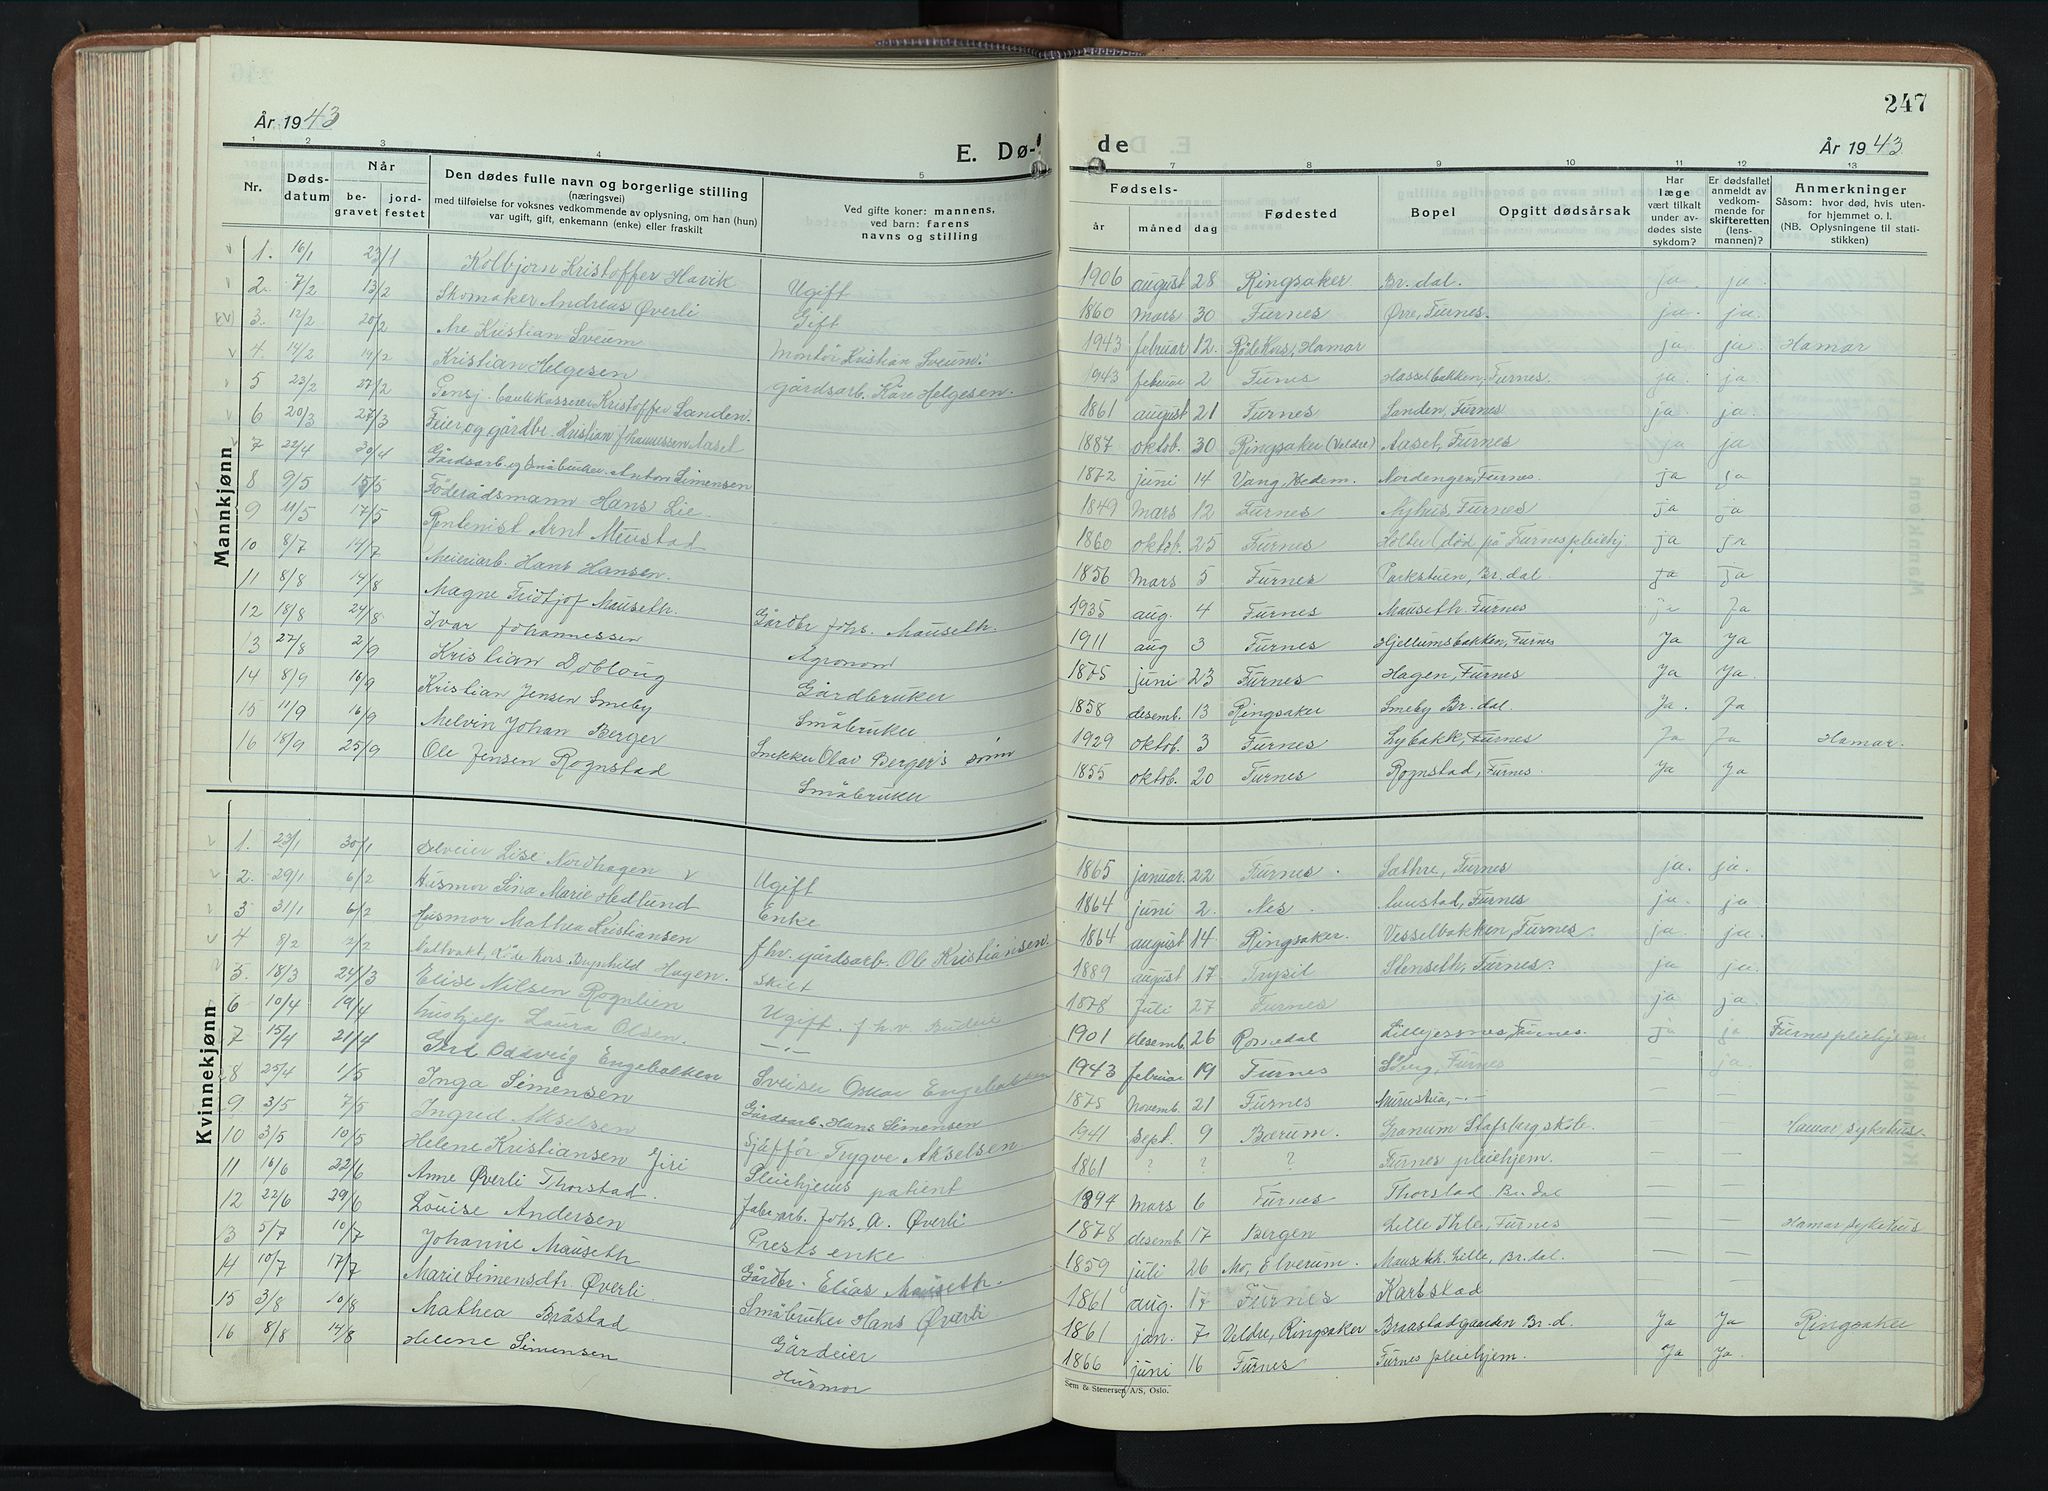 247
År 1943
E. Dø-
de
År 1943
1 2 3 4 5 7 8 9 10 11 12 13
Nr.
Døds-
datum
Når
be-
gravet
jord-
festet
Den dødes fulle navn og borgerlige stilling
(næringsvei)
med tilføielse for voksnes vedkommende av oplysning, om han (hun)
var ugift, gift, enkemann (enke) eller fraskilt
Ved gifte koner: mannens,
ved barn: farens
navns og stilling
Fødsels-
år måned dag
Fødested
Bopel
Opgitt dødsårsak
Har
læge
vært tilkalt
under av-
dødes siste
sykdom?
Er dødsfallet
anmeldt av
vedkom-
mende for
skifteretten
(lens-
mannen)?
Anmerkninger
Såsom: hvor død, hvis uten-
for hjemmet o. l.
(NB. Oplysningene til stati-
stikken)
Mannkjønn
1. 16/1 23/1 Kolbjørn Kristoffer Havik Ugift 1906 august 28 Ringsaker Br.dal. ja ja.
2. 7/2 13/2 Skomaker Andreas Øverli Gift 1860 mars 30 Furnes Øvre, Furnes. ja. ja.
3. 12/2 20/2 Are Kristian Sveum Montør Kristian Sveum. 1943 februar 12. Røde Kors, Hamar ja ja Hamar
4. 14/2 19/2 Kristian Helgesen gårdsarb. Kåre Helgesen. 1943 februar 2 Furnes Hasselbakken, Furnes. ja. ja
5 23/2 27/2 Pensj. bankkasserer Kristoffer Sanden. 1861 august 21 Furnes Sanden, Furnes ja ja.
6 20/3 27/3 Feier og gårdbr. Kristian Johannessen Aaset 1887 oktob. 30 Ringsaker (Veldre) Aaset, Furnes ja ja
7 22/4 30/4 Gårdsarb. og småbruker Anton Simensen 1872 juni 14 Vang, Hedem. Nordengen, Furnes. ja ja
8 9/5 15/5 Føderådsmann Hans Lie 1849 mars 12 Furnes Nyhus, Furnes ja ja
9 11/5 17/5 Rentenist Arnt Meustad 1860 oktob. 25 Furnes Holter (død på Furnes pleiehj. ja ja
10 8/7 14/7 Meieriarb. Hans Hansen. 1856 mars 5 Furnes Parkstuen, Br.dal. ja ja
11 8/8 14/8 Magne Fridtjof Mauseth. Gårdbr Johs. Mauseth. 1935 aug. 4 Furnes Mauseth. Furnes ja Ja
12 18/8 24/8 Ivar Johannessen Agronom 1911 aug 3 Furnes Hjellumsbakken, Furnes Ja Ja
13 27/8 2/9 Kristian Dobloug Gårdbruker 1875 juni 23 Furnes Hagen, Furnes Ja Ja.
14 8/9 16/9 Kristian Jensen Smeby Småbruker 1858 desemb. 13 Ringsaker Smeby Br.dal Ja. Ja
15 11/9 16/9 Melvin Johan Berger Snekker Olav Berger's sønn 1929 oktob. 3 Furnes Lybakk, Furnes Ja Ja Hamar.
16 18/9 25/9 Ole Jensen Rognstad Småbruker 1855 oktob. 20 Furnes Rognstad, Furnes. Ja Ja
Kvinnekjønn
1. 23/1 30/1 Lise Nordhagen Ugift 1865 januar. 22 Furnes. Sathre, Furnes ja. ja.
2. 29/1 6/2 Husmor Lina Marie Hedlund Enke 1864 juni 2. Nes. Furnes ja. ja
3 31/1 6/2 Husmor Mathea Kristiansen fhv. gårdsarb. Ole Kristiansen 1864 august 14 Ringsaker. Vesselbakken, Furnes. ja. ja.
4 8/2 2/2 Nattvakt, Røde Kors. Ragnhild Hagen. Skilt 1889 august 17 Trysil Stenseth, Furnes. ja ja.
5. 18/3 24/3 Elise Nilsen Rognlien Ugift. f.h.v. Budeie 1878 Juli 27 Furnes ja ja.
6 10/4 19/4 hushjelp Laura Olsen. —„— 1901 desemb. 26 Romedal Lillejessnes, Furnes. ja ja Furnes pleiehjem
7 15/4 21/4 Gerd Oddveig Engebakken Sveiser Oskar Engebakken 1943 februar 19 Furnes Furnes — ja
8 25/4 1/5 Inga Simensen Gårdsarb. Hans Simensen 1875 novemb. 21 Furnes —
9 3/5 7/5 Ingrid Akselsen Sjåfför Trygve Akselsen 1941 Sept. 9 Bærum. Granum Stafsberg skole. — Hamar sykehus
10 3/5 10/5 Helene Kristiansen Jiri Pleiehjems patient 1861 ? ? ? Furnes pleiehjem. — —
11 16/6 22/6 Anne Øverli Thorstad. Fabr.arb. Johs. A. Øverli 1894 mars 6 Furnes Thorstad Br.dal — —
12 22/6 29/6 Louise Andersen Prests enke 1878 desemb. 17 Bergen Lille Ihle, Furnes — — Hamar sykehus
13 5/7 10/7 Johanne Mauseth Gårdbr. Elias Mauseth. 1859 juli 26 Mo, Elverum. Mauseth Lille, Br.dal. — —
14 10/7 17/7 Marie Simensdtr. Øverli Småbruker Hans Øverli 1861 aug. 17 Furnes Karlstad —
15 3/8 10/8 Mathea Bråstad Gårdeier 1861 jan. 7 Veldre, Ringsaker Braastadgaarden Br.d. Ja Ja Ringsaker
16 8/8 14/8 Helene Simensen Husmor 1866 juni 16 Furnes Furnes pleiehjem. Ja Ja.
Sem & Stenersen A/S, Oslo.